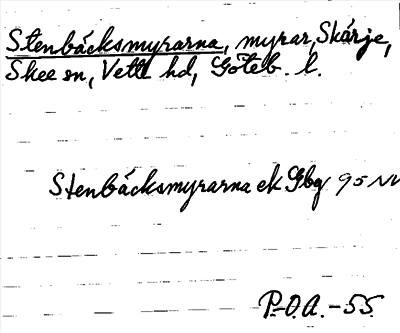 Stenbäcksmyrarna, myrar, Skärje,
Skee sn, Vette hd, Göteb. l.
Stenbäcksmyrarna ek Gbg 95 NV
P.-O.A. -55.